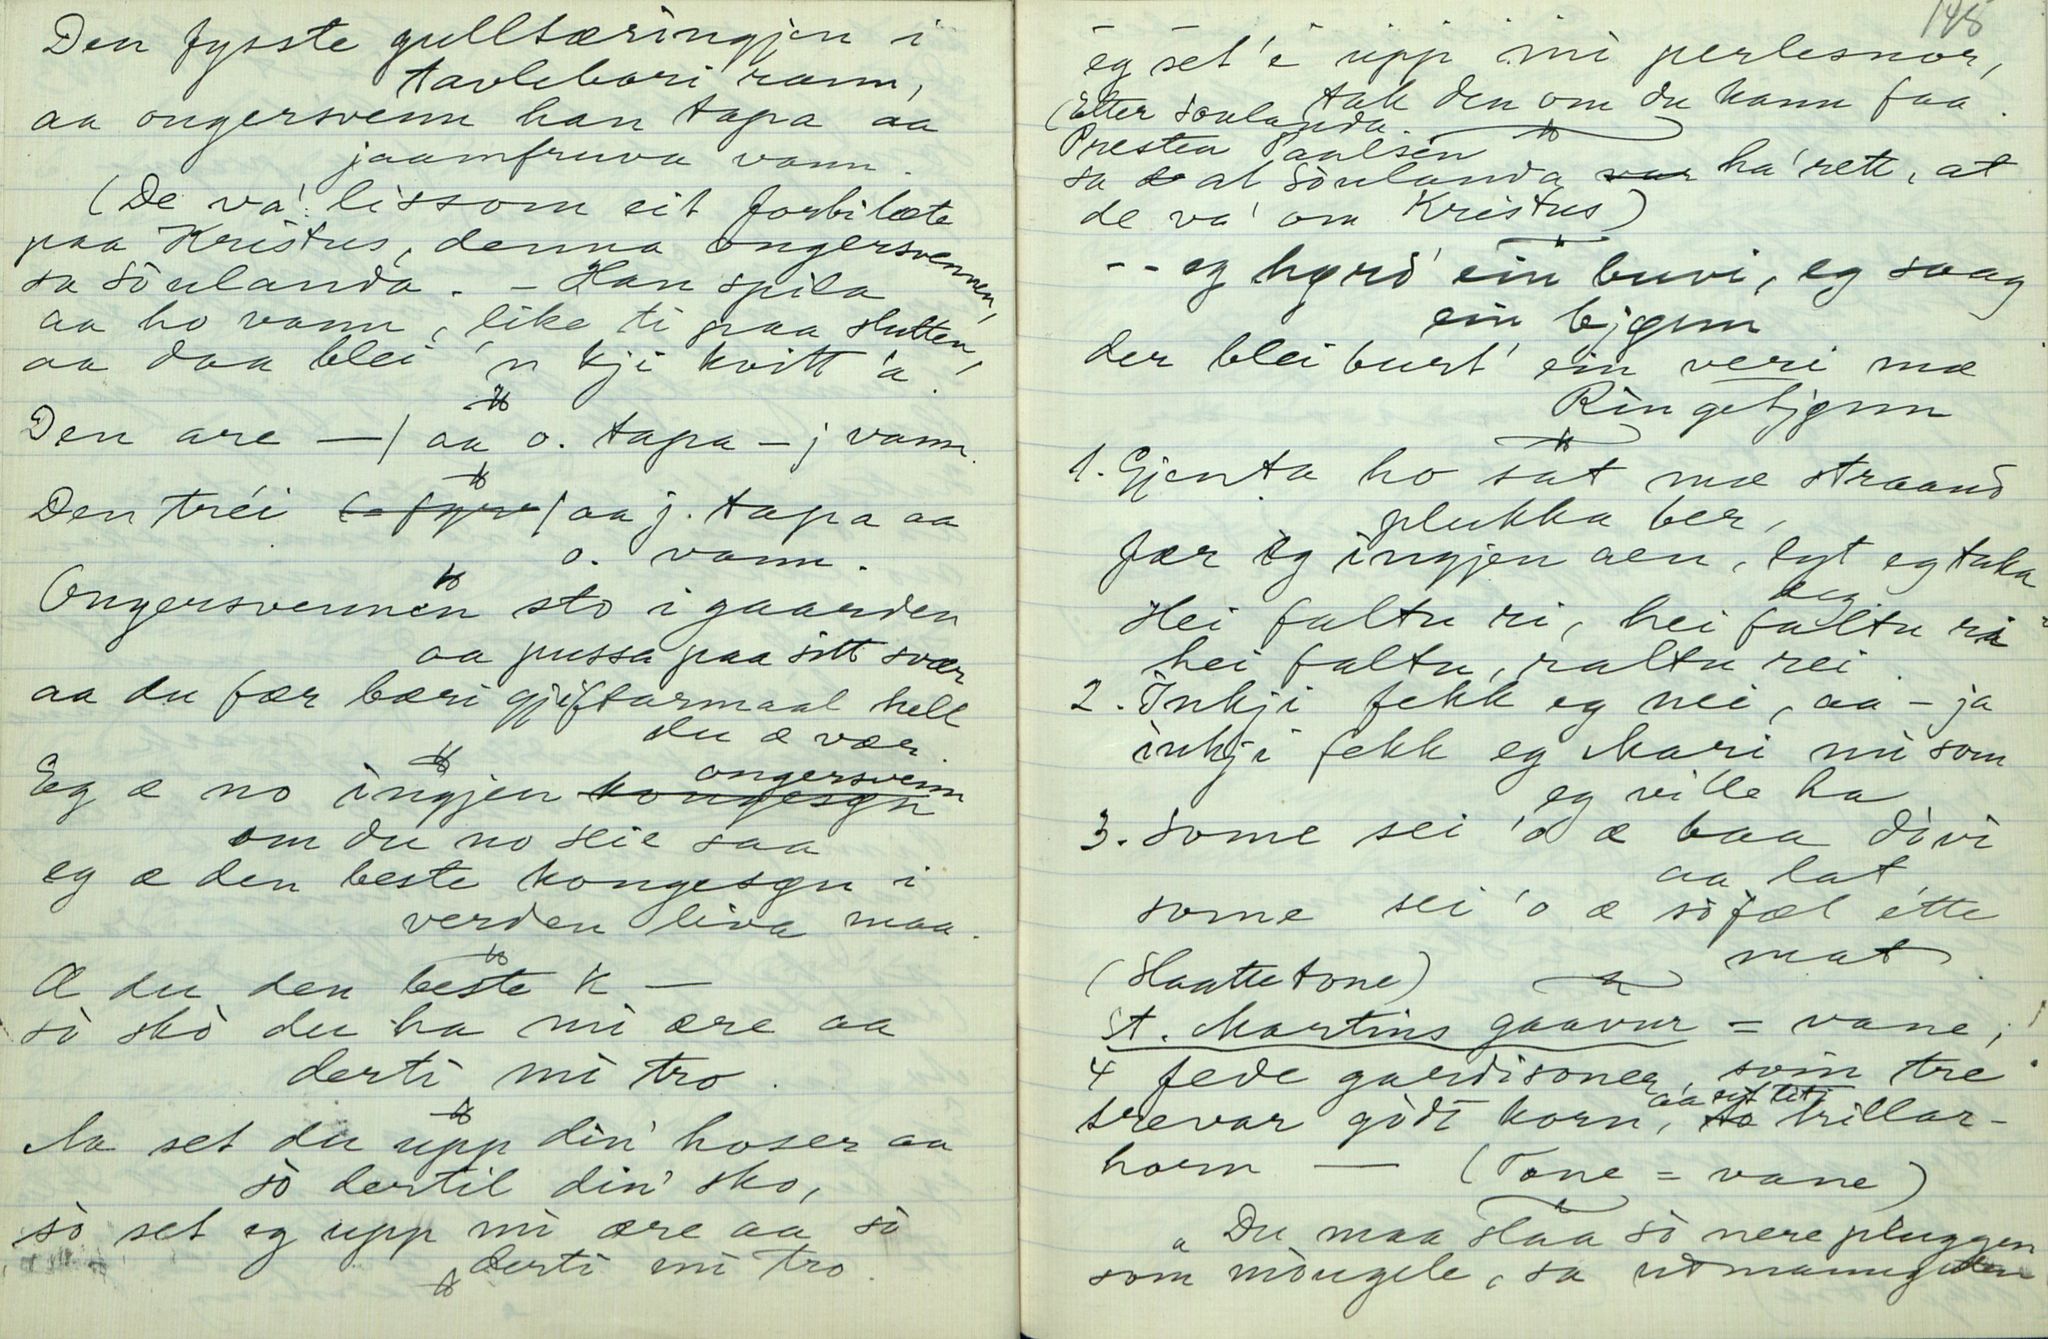 Den fysste gulltæringjen i
tavlebori rann,
aa ongersvenn han tapa aa
jaamfruva vann.
(De va' lissom eit forbilæte
paa Kristus, denna ongersvennen,
sa Sòulanda. - Han spila
aa ho vann, like ti paa slutten,
aa daa blei 'n kji kvitt 'a.
Den are — / aa o. tapa - j vann.
Den tréi / aa j. tapa aa
o. vann.
Ongersvennen sto i gaarden
aa pussa paa sitt svær
aa du fær bæri gjiftarmaal hell
du æ vær
ongersveinn
Eg æ no ingjen kongesøn
om du no seie saa
eg æ den beste kongesøn i
verden liva maa.
Æ du den beste k —
sò skò du ha mi ære aa
derti mi tro.
Aa set du upp din' hoser aa
sò dertil din' sko,
sò set eg upp mi ære aa sò
derti mi tro.
148
eg set 'e upp mi perlesnor,
tak den om du kann faa.
(Etter Sòulanda.
Presten Paalsen
sa at Sòulanda var ha' rett, at
de va' om Kristus)
-- eg høyrd' ein buvi, eg saag
ein bjønn
der blei burt' ein veri mæ
Ringetjønn
1. Gjenta ho sat mæ straand
plukka ber,
fær eg ingjen aen, lyt eg taka
deg
Hei faltu ri, hei faltu ra
hei faltu, raltu rei
2. Inkji fekk eg nei, aa - ja
inkji fekk eg Mari mi som
eg ville ha
3. Some sei 'o æ baa divi
aa lat
some sei 'o æ sò fæl ette
mat
(Slaattetone)
St. Martins gaavur = vane,
4 fede gardisoner, som tre
aa sit liti
trevar gòdt korn, to trillar-
horn — (Tone = vane)
Du maa slaa sò nere pluggen
som mòugele, sa